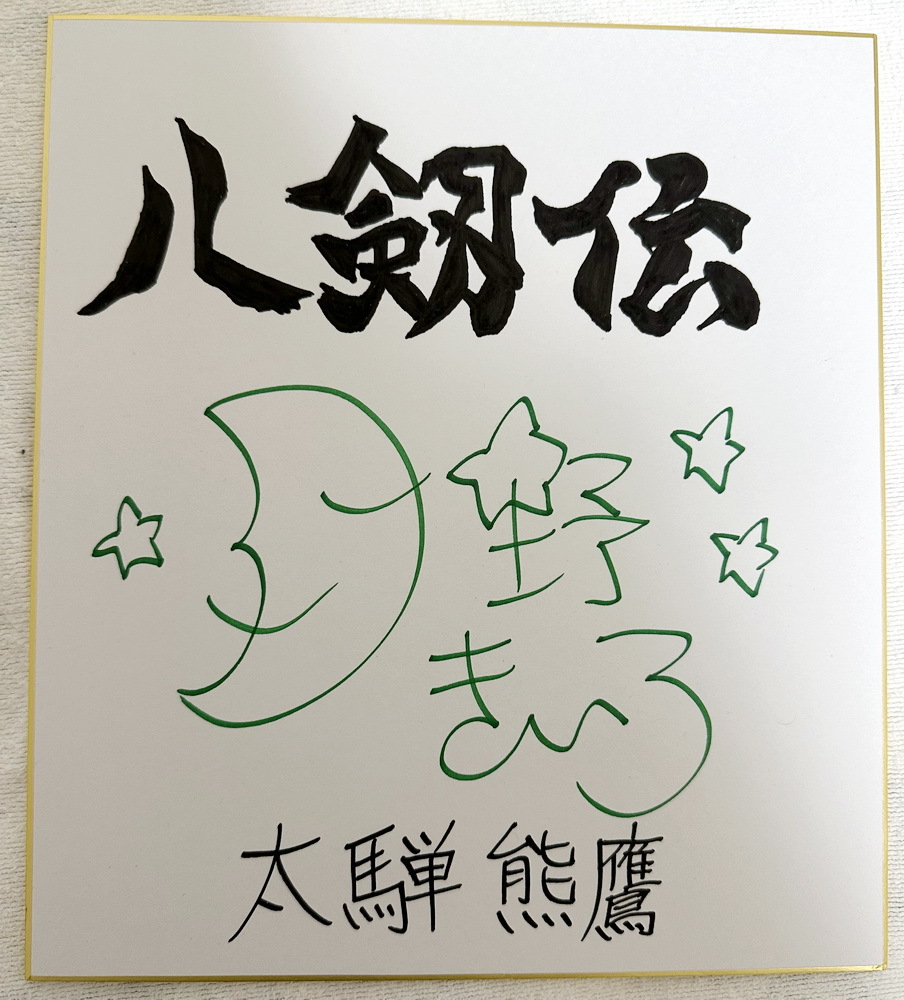 八剱伝
月野
きいろ
太騨熊鷹